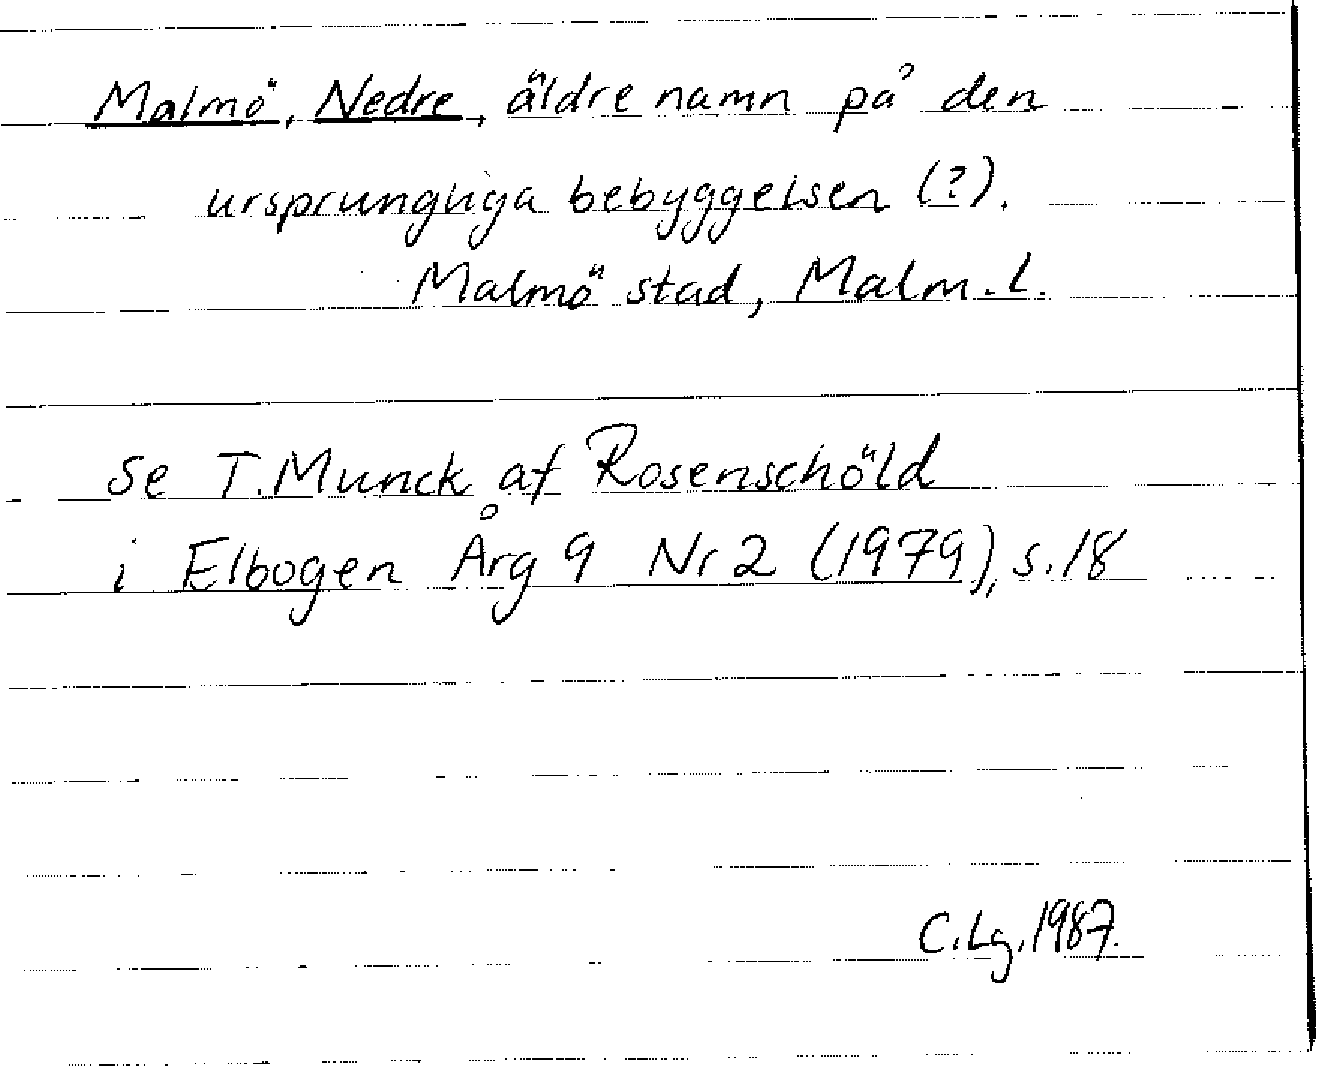 Malmö, Nedre, äldre namn på den
ursprungliga bebyggelsen (?).
Malmö stad, Malm. L.
Se T. Munck af Rosenschöld
i Elbogen Årg 9 Nr 2 (1979), s. 18
C. Lg. 1987.